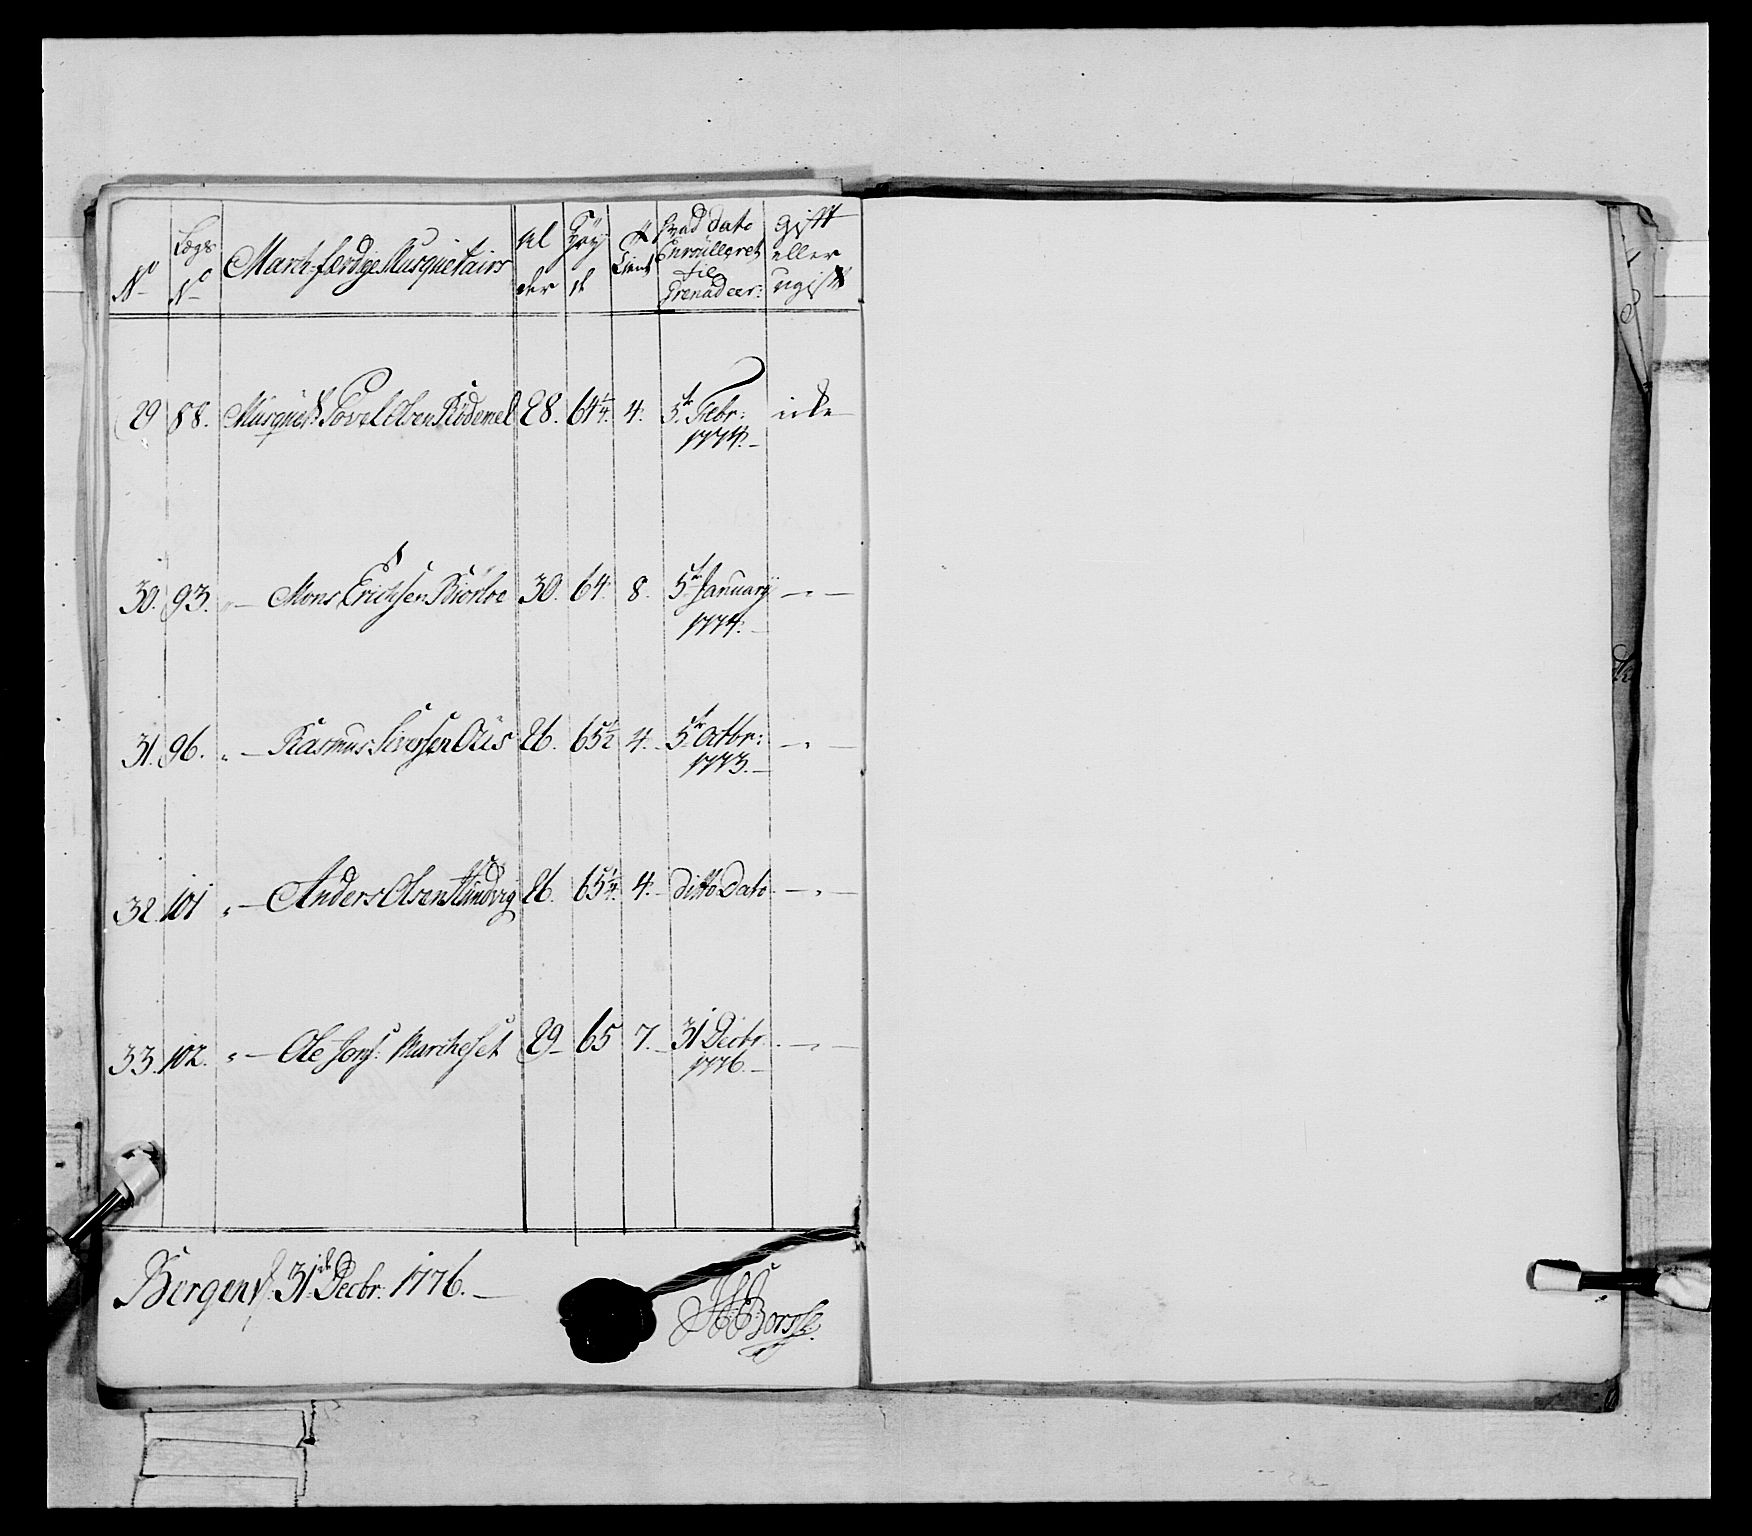 No Lægs No March-færdige Musquetairs Alder Höyde Tient Hvad dato Enroulleret til Grenadeer: gift eller ugift
29 88. Musquet: Povel Olsen Rödemel 28. 64 1/4. 4. 5te Febr: 1774.
icke
30. 93. " Mons Erichsen 30. 64. 8. 5te January 1774. "
31. 96. " Rasmus Siversen 26. 65 1/2 4. 5te Octbr: 1773. "
32. 101 " Anders Olsen 26. 65 1/4. 4. ditto Dato "
33. 102. " Ole Jons: 29 65 7. 31 Decbr. 1776. "
Bergen d: 31te Decbr. 1776.